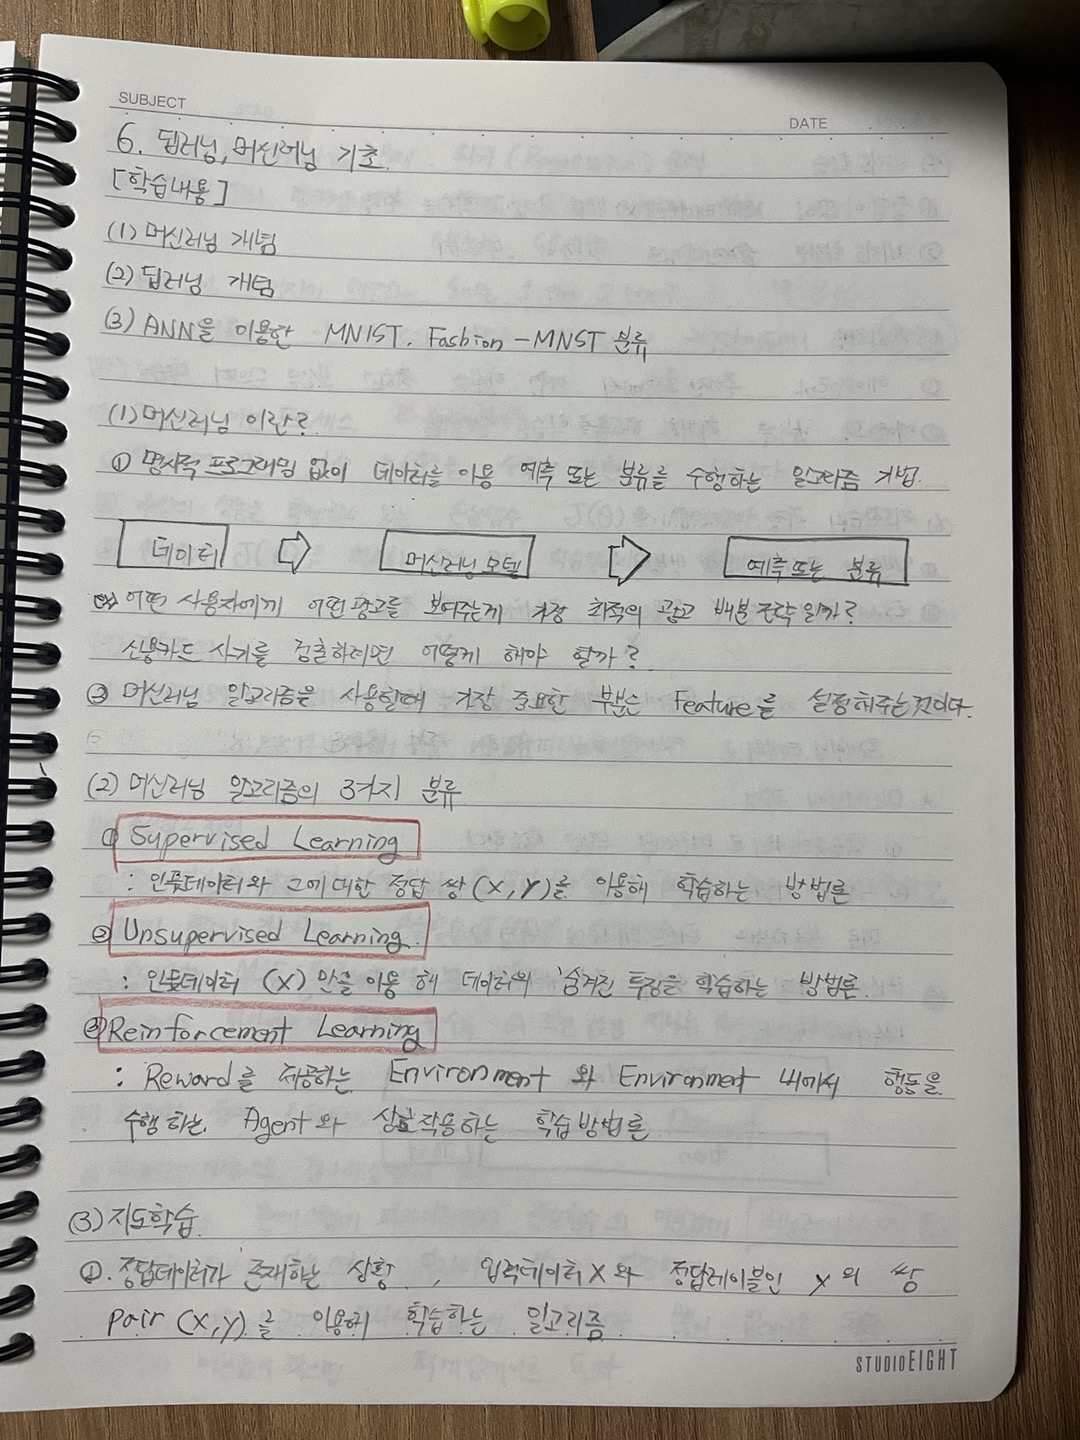 SUBJECT
DATE
6. 딥러닝, 머신러닝 기초.
[학습내용]
(1) 머신러닝 개념
(2) 딥러닝 개념
(3) ANN을 이용한 MNIST. Fashion - MNST 분류
(1) 머신러닝 이란?
① 명시적 프로그래밍 없이 데이터를 이용 예측 또는 분류를 수행하는 알고리즘 기법.
데이터 ⇨ 머신러닝 모델 ⇨ 예측 또는 분류
ex) 어떤 사용자에게 어떤 광고를 보여주는게 가장 최적의 광고 배분 전략 일까?
신용카드 사기를 검출하려면 어떻게 해야 할까?
② 머신러닝 알고리즘을 사용할때 가장 중요한 부분은 Feature를 설정해주는것이다.
(2) 머신러닝 알고리즘의 3가지 분류
① Supervised Learning
: 인풋데이터와 그에 대한 정답 쌍 (X, Y)를 이용해 학습하는 방법론
② Unsupervised Learning.
: 인풋데이터 (X) 만을 이용 해 데이터의 숨겨진 특징을 학습하는 방법론.
③ Reinforcement Learning
: Reward를 제공하는 Environment 와 Environment 내에서 행동을
수행 하는. Agent와 상호작용하는 학습방법론
(3) 지도학습.
①. 정답데이터가 존재하는 상황, 입력데이터 X와 정답레이블인 y의 쌍
Pair (X, y) 를 이용해 학습하는 알고리즘
STUDIOEIGHT